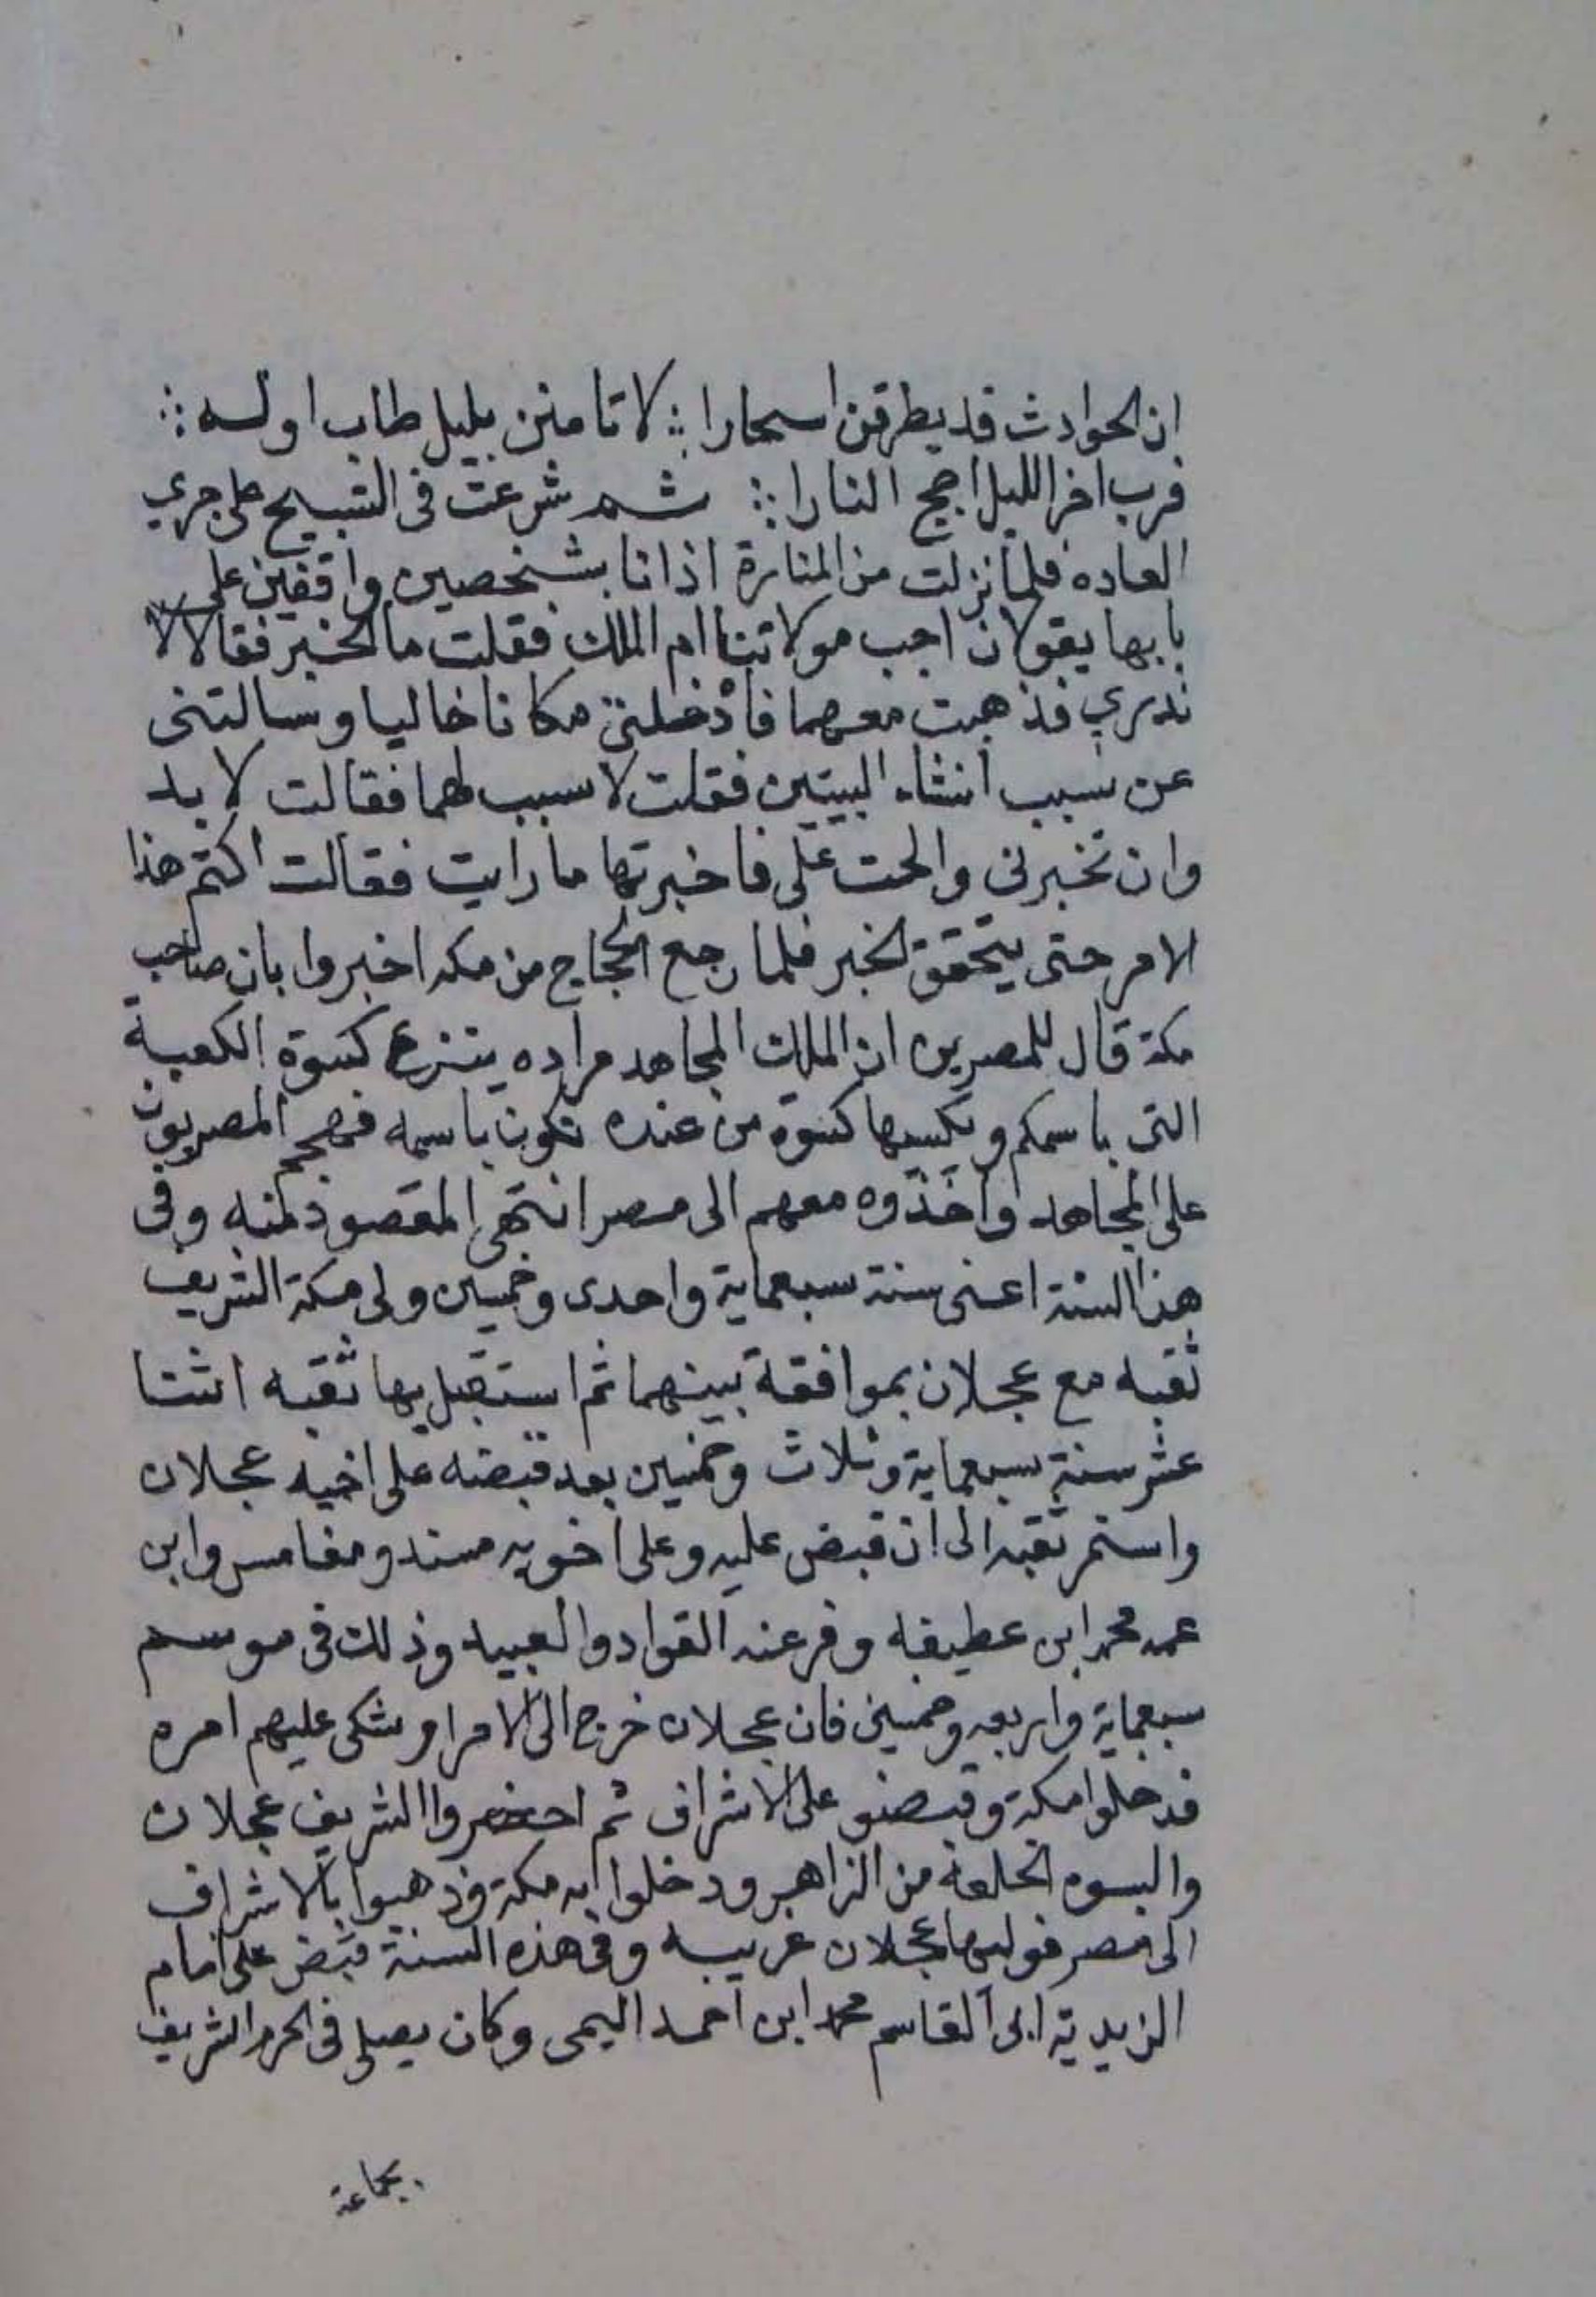 ان الحوادث قد يطرقن اسحارا ؞ لا تامنن بليل طاب اوله ؞
فرب اخر الليل اجج النارا ؞ ثم شرعت فى التسبيح على جري
العاده فلما نزلت من المنارة اذ انا بشخصين واقفين على
بابها يقولان اجب مولاتنا ام الملك فقلت ما الخبر فقالا لا
ندري فذهبت معهما فأدخلتنى مكانا خاليا وسالتنى
عن سبب انشاء البيتين فقلت لا سبب لهما فقالت لا بد
وان تخبرنى والحت على فاخبرتها ما رايت فقالت اكتم هذا
الامر حتى يتحقق الخبر فلما رجع الحجاج من مكه اخبروا بان صاحب
مكة قال للمصرين ان الملك المجاهد مراده ينزع كسوة الكعبة
التى باسمكم ويكسيها كسوة من عنده تكون باسمه فهجم المصريون
على المجاهد وأخذوه معهم الى مصر انتهى المقصود منه وفى
هذا السنة اعنى سنة سبعماية واحدى وخمسين ولى مكة الشريف
ثقبه مع عجلان بموافقة بينهما ثم استقبل بها ثقبه اثنتا
عشر سنة سبعماية وثلاث وخمسين بعد قبضه على اخيه عجلان
واستمر ثقبه الى ان قبض عليه وعلى اخويه مسند ومغامس وابن
عمه محمد ابن عطيفه وفر عنه القواد والعبيد وذلك فى موسم
سبعماية واربعه وخمسين فان عجلان خرج الى الامرا وشكى عليهم امره
فدخلوا مكة وقبضو على الاشراف ثم احضروا الشريف عجلان
والبسوه الخلعة من الزاهر ودخلوا به مكة وذهبوا بالاشراف
الى مصر فوليها عجلان غريبه وفى هذه السنة قبض على امام
الزيدية ابى القاسم محمد ابن احمد اليمى وكان يصلى فى الحرم الشريف
بجماعة